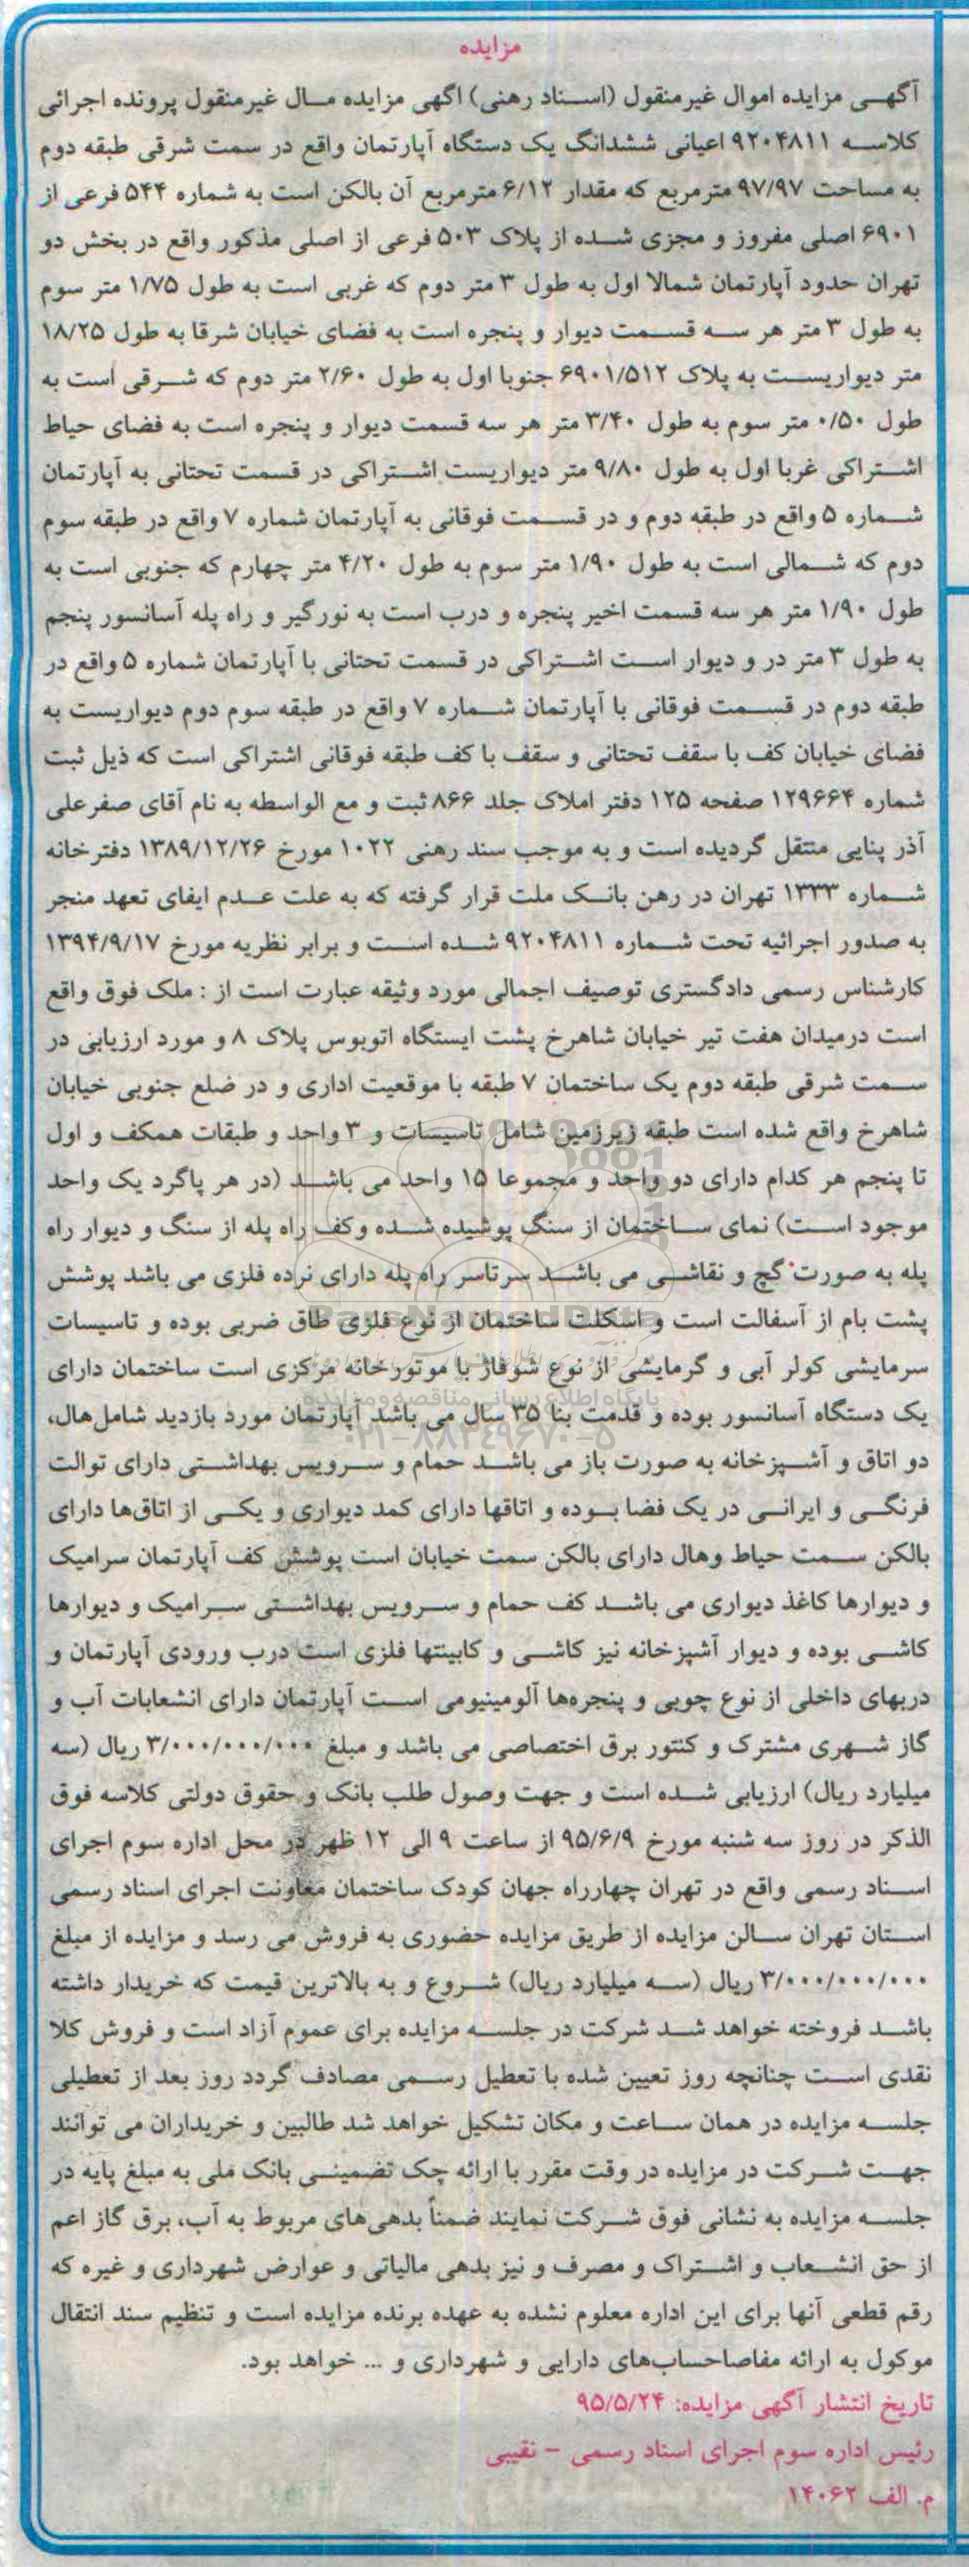 مزایده
آگهی مزایده اموال غیرمنقول (اسناد رهنی) اگهی مزایده مال غیرمنقول پرونده اجرائی
کلاسه ۹۲۰۴۸۱۱ اعیانی ششدانگ یک دستگاه آپارتمان واقع در سمت شرقی طبقه دوم
به مساحت ۹۷/۹۷ مترمربع که مقدار ۶/۱۲ مترمربع آن بالکن است به شماره ۵۴۴ فرعی از
۶۹۰۱ اصلی مفروز و مجزی شده از پلاک ۵۰۳ فرعی از اصلی مذکور واقع در بخش دو
تهران حدود آپارتمان شمالا اول به طول ۳ متر دوم که غربی است به طول ۱/۷۵ متر سوم
به طول ۳ متر هر سه قسمت دیوار و پنجره است به فضای خیابان شرقا به طول ۱۸/۲۵
متر دیواریست به پلاک ۶۹۰۱/۵۱۲ جنوبا اول به طول ۲/۶۰ متر دوم که شرقی است به
طول ۰/۵۰ متر سوم به طول ۳/۴۰ متر هر سه قسمت دیوار و پنجره است به فضای حیاط
اشتراکی غربا اول به طول ۹/۸۰ متر دیواریست اشتراکی در قسمت تحتانی به آپارتمان
شماره ۵ واقع در طبقه دوم و در قسمت فوقانی به آپارتمان شماره ۷ واقع در طبقه سوم
دوم که شمالی است به طول ۱/۹۰ متر سوم به طول ۴/۲۰ متر چهارم که جنوبی است به
طول ۱/۹۰ متر هر سه قسمت اخیر پنجره و درب است به نورگیر و راه پله آسانسور پنجم
به طول ۳ متر در و دیوار است اشتراکی در قسمت تحتانی با آپارتمان شماره ۵ واقع در
طبقه دوم در قسمت فوقانی با آپارتمان شماره ۷ واقع در طبقه سوم دوم دیواریست به
فضای خیابان کف با سقف تحتانی و سقف با کف طبقه فوقانی اشتراکی است که ذیل ثبت
شماره ۱۲۹۶۶۴ صفحه ۱۲۵ دفتر املاک جلد ۸۶۶ ثبت و مع الواسطه به نام آقای صفرعلی
آذر پنایی منتقل گردیده است و به موجب سند رهنی ۱۰۲۲ مورخ ۱۳۸۹/۱۲/۲۶ دفترخانه
شماره ۱۳۳۳ تهران در رهن بانک ملت قرار گرفته که به علت عدم ایفای تعهد منجر
به صدور اجرائیه تحت شماره ۹۲۰۴۸۱۱ شده است و برابر نظریه مورخ ۱۳۹۴/۹/۱۷
کارشناس رسمی دادگستری توصیف اجمالی مورد وثیقه عبارت است از : ملک فوق واقع
است درمیدان هفت تیر خیابان شاهرخ پشت ایستگاه اتوبوس پلاک ۸ و مورد ارزیابی در
سمت شرقی طبقه دوم یک ساختمان ۷ طبقه با موقعیت اداری و در ضلع جنوبی خیابان
شاهرخ واقع شده است طبقه زیرزمین شامل تاسیسات و ۳ واحد و طبقات همکف و اول
تا پنجم هر کدام دارای دو واحد و مجموعا ۱۵ واحد می باشد (در هر پاگرد یک واحد
موجود است) نمای ساختمان از سنگ پوشیده شده وکف راه پله از سنگ و دیوار راه
پله به صورت گچ و نقاشی می باشد سرتاسر راه پله دارای نرده فلزی می باشد پوشش
پشت بام از آسفالت است و اسکلت ساختمان از نوع فلزی طاق ضربی بوده و تاسیسات
سرمایشی کولر آبی و گرمایشی از نوع شوفاژ با موتورخانه مرکزی است ساختمان دارای
یک دستگاه آسانسور بوده و قدمت بنا ۳۵ سال می باشد آپارتمان مورد بازدید شامل‌هال،
دو اتاق و آشپزخانه به صورت باز می باشد حمام و سرویس بهداشتی دارای توالت
فرنگی و ایرانی در یک فضا بوده و اتاقها دارای کمد دیواری و یکی از اتاق‌ها دارای
بالکن سمت حیاط وهال دارای بالکن سمت خیابان است پوشش کف آپارتمان سرامیک
و دیوارها کاغذ دیواری می باشد کف حمام و سرویس بهداشتی سرامیک و دیوارها
کاشی بوده و دیوار آشپزخانه نیز کاشی و کابینتها فلزی است درب ورودی آپارتمان و
دربهای داخلی از نوع چوبی و پنجره‌ها آلومینیومی است آپارتمان دارای انشعابات آب و
گاز شهری مشترک و کنتور برق اختصاصی می باشد و مبلغ ۳/۰۰۰/۰۰۰/۰۰۰ ریال (سه
میلیارد ریال) ارزیابی شده است و جهت وصول طلب بانک و حقوق دولتی کلاسه فوق
الذکر در روز سه شنبه مورخ ۹۵/۶/۹ از ساعت ۹ الی ۱۲ ظهر در محل اداره سوم اجرای
اسناد رسمی واقع در تهران چهارراه جهان کودک ساختمان معاونت اجرای اسناد رسمی
استان تهران سالن مزایده از طریق مزایده حضوری به فروش می رسد و مزایده از مبلغ
۳/۰۰۰/۰۰۰/۰۰۰ ریال (سه میلیارد ریال) شروع و به بالاترین قیمت که خریدار داشته
باشد فروخته خواهد شد شرکت در جلسه مزایده برای عموم آزاد است و فروش کلا
نقدی است چنانچه روز تعیین شده با تعطیل رسمی مصادف گردد روز بعد از تعطیلی
جلسه مزایده در همان ساعت و مکان تشکیل خواهد شد طالبین و خریداران می توانند
جهت شرکت در مزایده در وقت مقرر با ارائه چک تضمینی بانک ملی به مبلغ پایه در
جلسه مزایده به نشانی فوق شرکت نمایند ضمناً بدهی‌های مربوط به آب، برق گاز اعم
از حق انشعاب و اشتراک و مصرف و نیز بدهی مالیاتی و عوارض شهرداری و غیره که
رقم قطعی آنها برای این اداره معلوم نشده به عهده برنده مزایده است و تنظیم سند انتقال
موکول به ارائه مفاصاحساب‌های دارایی و شهرداری و ... خواهد بود.
تاریخ انتشار آگهی مزایده: ۹۵/۵/۲۴
رئیس اداره سوم اجرای اسناد رسمی – نقیبی
م. الف ۱۴۰۶۲
ParsNamadData
پایگاه اطلاع رسانی مناقصه و مزایده
۰۲۱-۸۸۳۴۹۶۷۰-۵